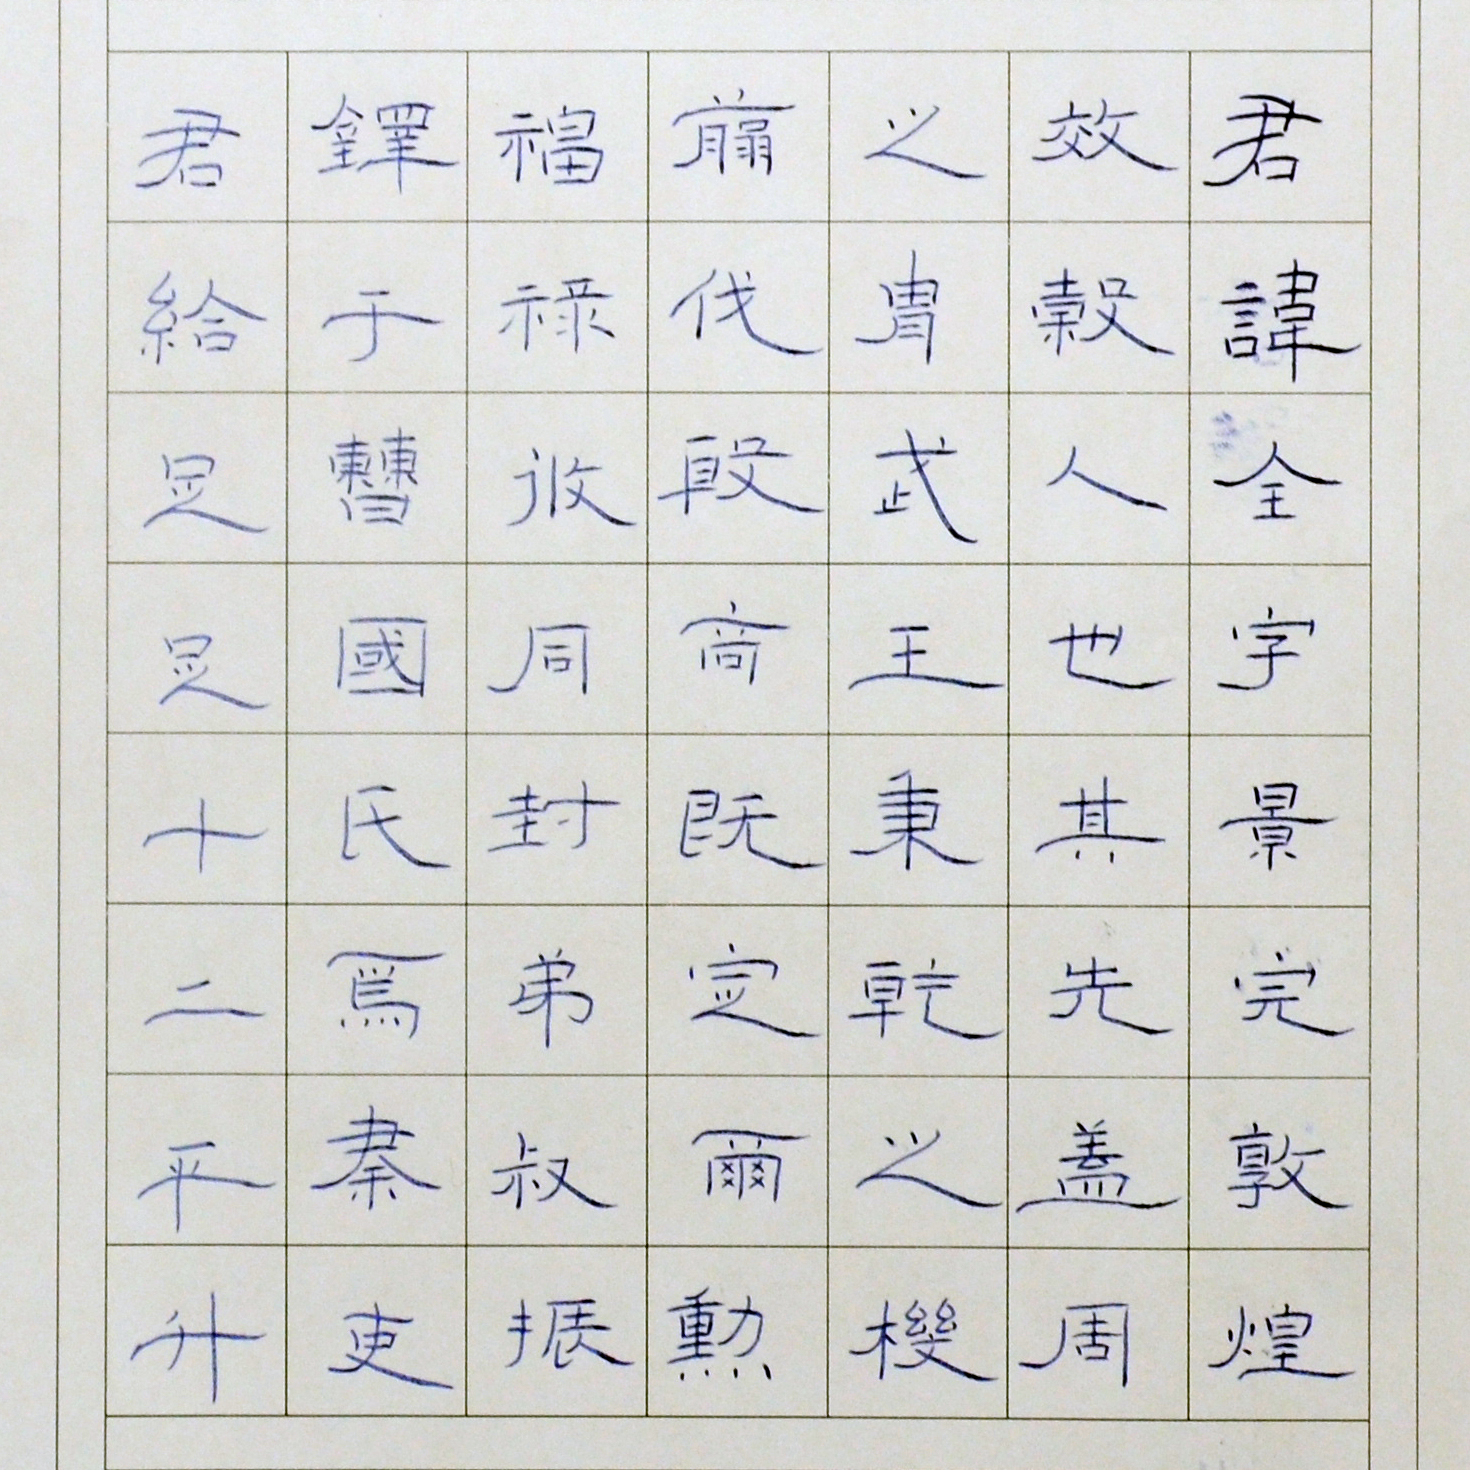 君諱全字景完敦煌
效穀人也其先蓋周
之胄武王秉乾之機
翦伐殷商既定爾勳
福祿攸同封弟叔振
鐸于曹國氏焉秦吏
君給足足十二平升